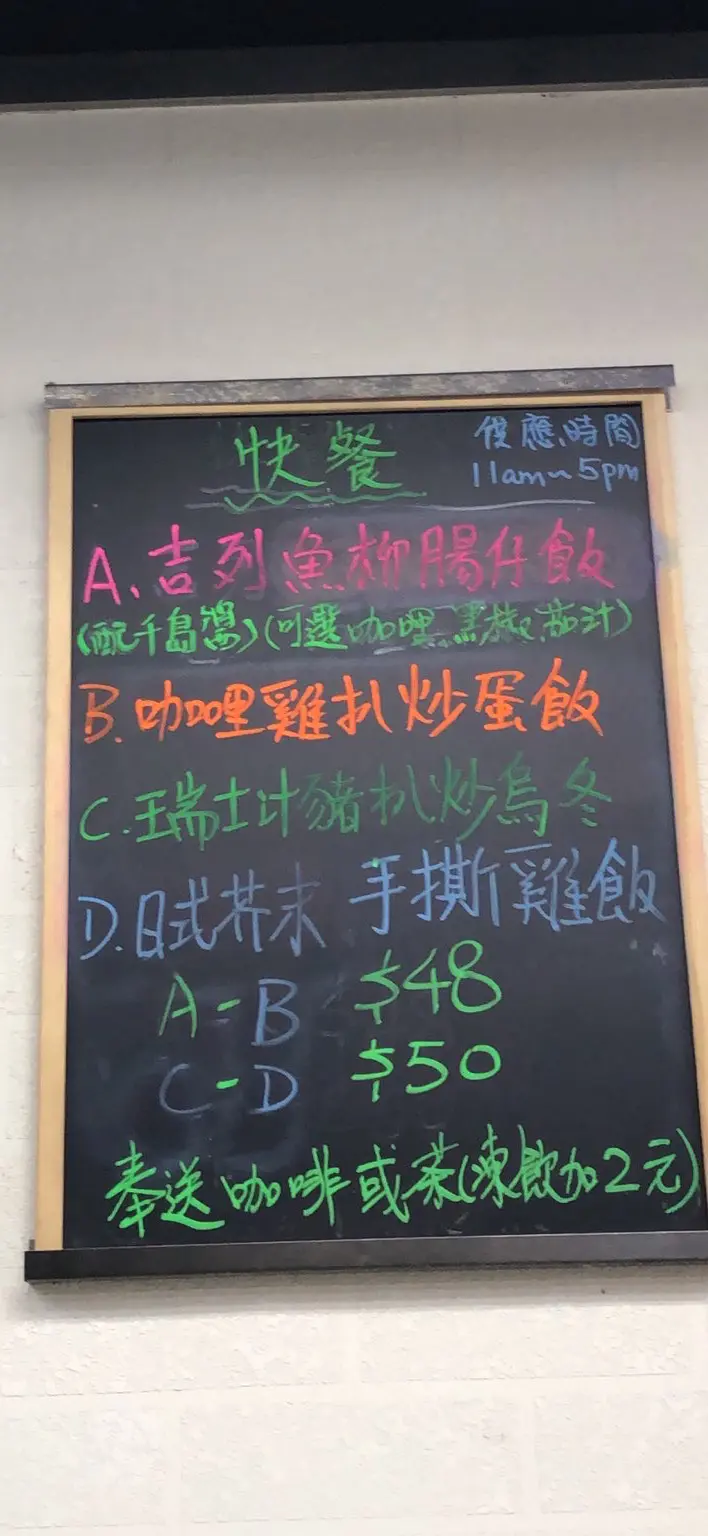 快餐
供應時間
11am~5pm
A、吉列魚柳腸仔飯
(配千島醬)(可選咖哩、黑椒、茄汁)
B.咖哩雞扒炒蛋飯
C.瑞士汁豬扒炒烏冬
D.日式芥末 手撕雞飯
A-B $48
C-D $50
奉送咖啡或茶(凍飲加2元)